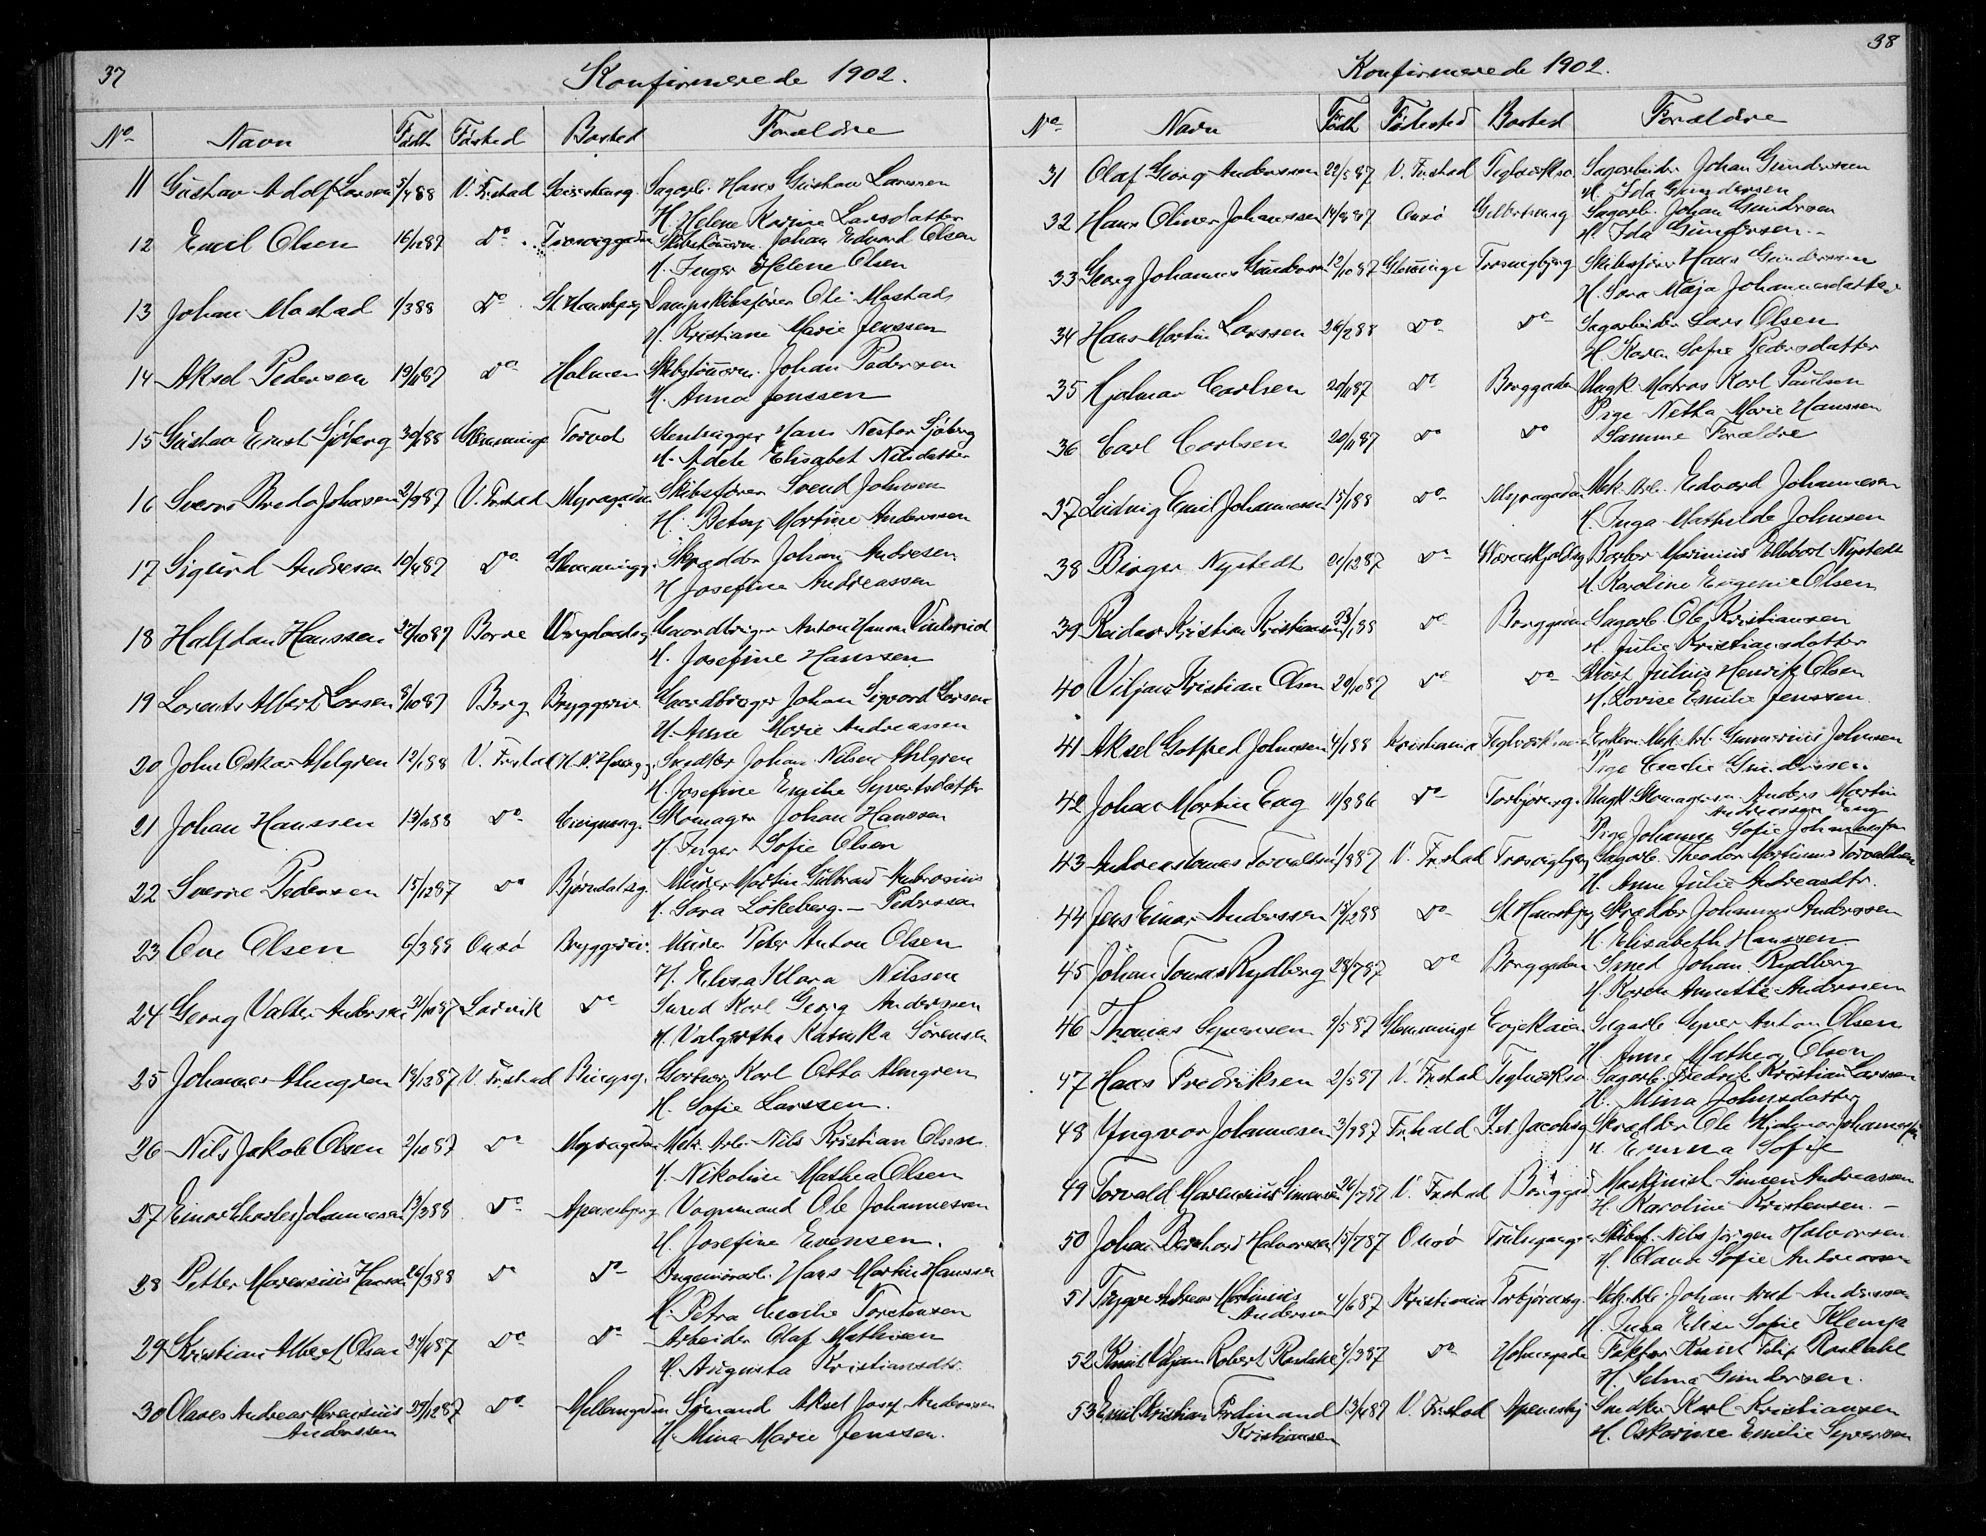 37
Konfirmerede 1902.
No Navn Født Fødested Bosted Forældre
11 Gustav Adolf Larsen 5/4 88 V. Frstad Sagarb. Hans Gustav Larssen
H. Helene Karine Larsdatter
12 Emil Olsen 16/12 87 Do Skibstømm. Johan Edvard Olsen
H. Inger Helene Olsen
13 Johan Mastad 1/3 88 Do St. Hansbjerg Dampskibsfører Ole Mastad
H. Kristiane Marie Jenssen
14 Aksel Pedersen 19/11 87 Do Holmen Skibstømm. Johan Pedersen
H. Anna Jenssen
15 Gustav Ernst Sjøberg 88 Glemminge Torvet Stenhugger Hans Nestor Sjöberg
H. Adele Elisabet Nilsdatter
16 Sverre Johnsen 2/9 87 V. Frstad Myragaden Skibsfører Svend Johnsen
H. Betsy Martine Anderssen
17 Sigurd Andresen 10/4 87 Do Glemmingg. Skrædder Johan Andresen
H. Josefine Andreassen
18 Halfdan Hanssen 27/10 87 Borre Gaardbruger Anton Hansen
H. Josefine Hanssen
19 Lorents Albert Larsen 8/10 87 Berg Bryggeriv. Gaardbruger Johan Sigvard Larsen
H. Anne Marie Andreassen
20 John Oskar Ahlgren 12/1 88 V. Frstad Snedker Johan Nilsen Ahlgren
H. Josefine Emilie Syvertsdatter
21 Johan Hanssen 13/2 88 Do Skomager Johan Hanssen
H. Inger Sofie Olsen
22 Sverre Pedersen 15/12 87 Do Bjørndalsg. Murer Martin Gulbrand Ambrosius
H. Sara Løkeberg. — Pederssen
23 Ove Olsen 6/3 88 Onsö Bryggeriv. Murer Peter Anton Olsen
H. Elisa Klara Nilssen
24 Georg Valter Anderssen 31/10 87 Larvik Do Smed Karl Georg Anderssen
H. Valgertha Katinka Sørensen
25 Johannes Almgren 19/12 87 V. Frstad Karl Otto Almgren
H. Sofie Larssen.
26 Nils Jakob Olsen 2/10 87 Do Myragaden Mek. Arb. Nils Kristian Olsen
H. Nikoline Mathea Olsen
27 Einar Charles Johannesen 13/3 88 Do Apenesbjerg Vognmand Ole Johannessen
H. Josefine Evensen.
28 Petter Marensius Hansen 26/3 88 Do Do Hans Martin Hanssen
H. Petra Emilie Torstensen
29 Kristian Albert Olsen 24/4 87 Do Do Arbeider Olaf Mathisen
H. Augusta Kristiansdtr.
30 Olaves Andreas Marensius Anderssen 29/12 87 Do Mellemgaden Sømand Aksel Josef Anderssen
H. Mina Marie Jenssen.
38
Konfirmerede 1902.
No Navn Født Fødested Bosted Forældre
31 Olaf Georg Anderssen 22/5 87 V. Frstad Teglværksg. Sagarbeider Johan Gunderssen
H. Ida Gundersen
32 Hans Oliver Johanssen 19/8 87 Onsö Sagarb. Johan Gundersen
H. Ida Gundersen. –
33 Georg Johannes Gundersen 12/10 87 Glemminge Trosvigbjerg Skibsfører Hans Gunderssen
H. Sara Maja Johannesdatter
34 Hans Martin Larssen 26/2 88 Do Do Sagarbeider Lars Olsen
H. Karen Sofie Pedersdatter
35 Hjalmar Carlsen 20/11 87 Do Borggaden Ungk. Matros Karl Paulsen
Pige Netha Marie Hanssen
36 Carl Carlsen 20/11 87 Do Do Samme Forældre
37 Ludvig Emil Johannessen 15/1 88 Do Myragaden Mek. Arb. Edvard Johannesen
H. Inga Mathilde Johnsen
38 Birger Nystedt 21/12 87 Do Barber Marinius Nystedt
H. Karoline Eugenie Olsen
39 Reidar Kristian Kristiansen 23/1 88 Do Borggaden Sagarb. Ole Kristiansen
H. Julie Kristiansdatter
40 Viljam Kristian Olsen 20/10 87 Do Do Julius Henrik Olsen
H. Lovise Emilie Jenssen.
41 Aksel Gotfred Johnssen 4/1 88 Kristiania Teglværksg. Enkem. Mek. Arb. Gunnerius Johnsen
Pige Emilie Gunderssen.
42 Johan Martin Eng 11/8 86 Do Torbjørnsg. Ungk. Skomagersv. Anders Martin Andreassen Eng
Pige Johanne Sofie Johannessen
43 Andreas Tomas Torvaldsen 1/8 87 V. Frstad Trosvigbjerg Sagarb. Theodor Martinius Torvaldsen
H. Anne Julie Andreasdtr.
44 Jens Einar Anderssen 18/12 88 Do St. Hansbjerg Skrædder Johannes Anderssen
H. Elisabeth Hanssen.
45 Johan Tomas Rydberg 28/7 87 Do Borggaden Smed Johan Rydberg
H. Karen Annette Anderssen
46 Thomas Syversen 7/5 87 Glemminge Sagarb. Syver Anton Olsen
H. Anne Mathea Olsen
47 Hans Fredriksen 2/5 87 V. Frstad Teglværksg. Sagarb. Fredrik Kristian Larssen
H. Mina Johnsdatter
48 Yngvar Johannesen 3/9 87 Fr.hald Skrædder Ole Hjalmar Johannessen
H. Emma Sofie
49 Torvald Marensius Simensen 26/7 87 V. Frstad Maskinist Simen Andreassen
H. Karoline Kristensen. –
50 Johan Bernhard Halvorsen 15/7 87 Onsö Skibsf. Nils Jörgen Halvorsen
H. Olava Sofie Andreassen
51 Trygve Andreas Martinius Andersen 4/6 87 Kristiania Torbjørnsg. Mek. Arb. Johan Anderssen
H. Inga Elise Sofie
52 Knut Viljam Robert Rosdahl 4/3 87 Do Holmegaden Faktor Knut Filip Rosdahl
H. Selma Gundersen.
53 Emil Kristian Ferdinand Kristiansen 13/4 87 V. Frstad Apenesbj. Snedker Karl Kristiansen
H. Oskarine Emilie Syverssen